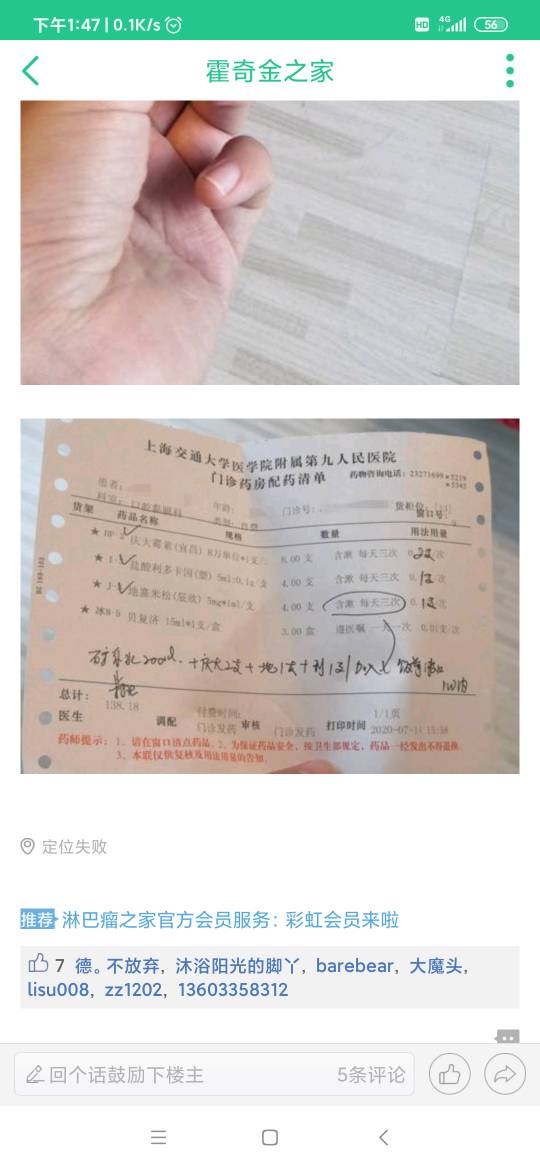 下午1:47 | 0.1K/s
HD 4G 56
霍奇金之家
上海交通大学医学院附属第九人民医院
门诊药房配药清单
药物咨询电话：23271699*5219
*5345
患者：
科室：口腔黏膜科
年龄：
类别：自费
门诊号：
货柜位：
窗口号：
货架 药品名称 规格 数量 用法用量
庆大霉素(宜昌) 8万单位*1支/ 8.00 支 含漱 每天三次
盐酸利多卡因(塑) 5ml:0.1g/支 4.00 支 含漱 每天三次
地塞米松(辰欣) 5mg*1ml/支 4.00 支 含漱 每天三次
贝复济 15ml*1支/盒 3.00 盒 遵医嘱 一次 0.01支/次
总计： 138.18
医生 调配 付费时间： 审核 门诊发药 打印时间 1/1页
门诊发药 2020-07-14
药师提示：1、请在窗口清点药品。2、为保证药品安全，按卫生部规定，药品一经发出不得退换。
3、本联仅供复核及用法用量的告知。
定位失败
推荐 淋巴瘤之家官方会员服务：彩虹会员来啦
7 德。不放弃，沐浴阳光的脚丫，barebear，大魔头，
lisu008，zz1202，13603358312
回个话鼓励下楼主 5条评论